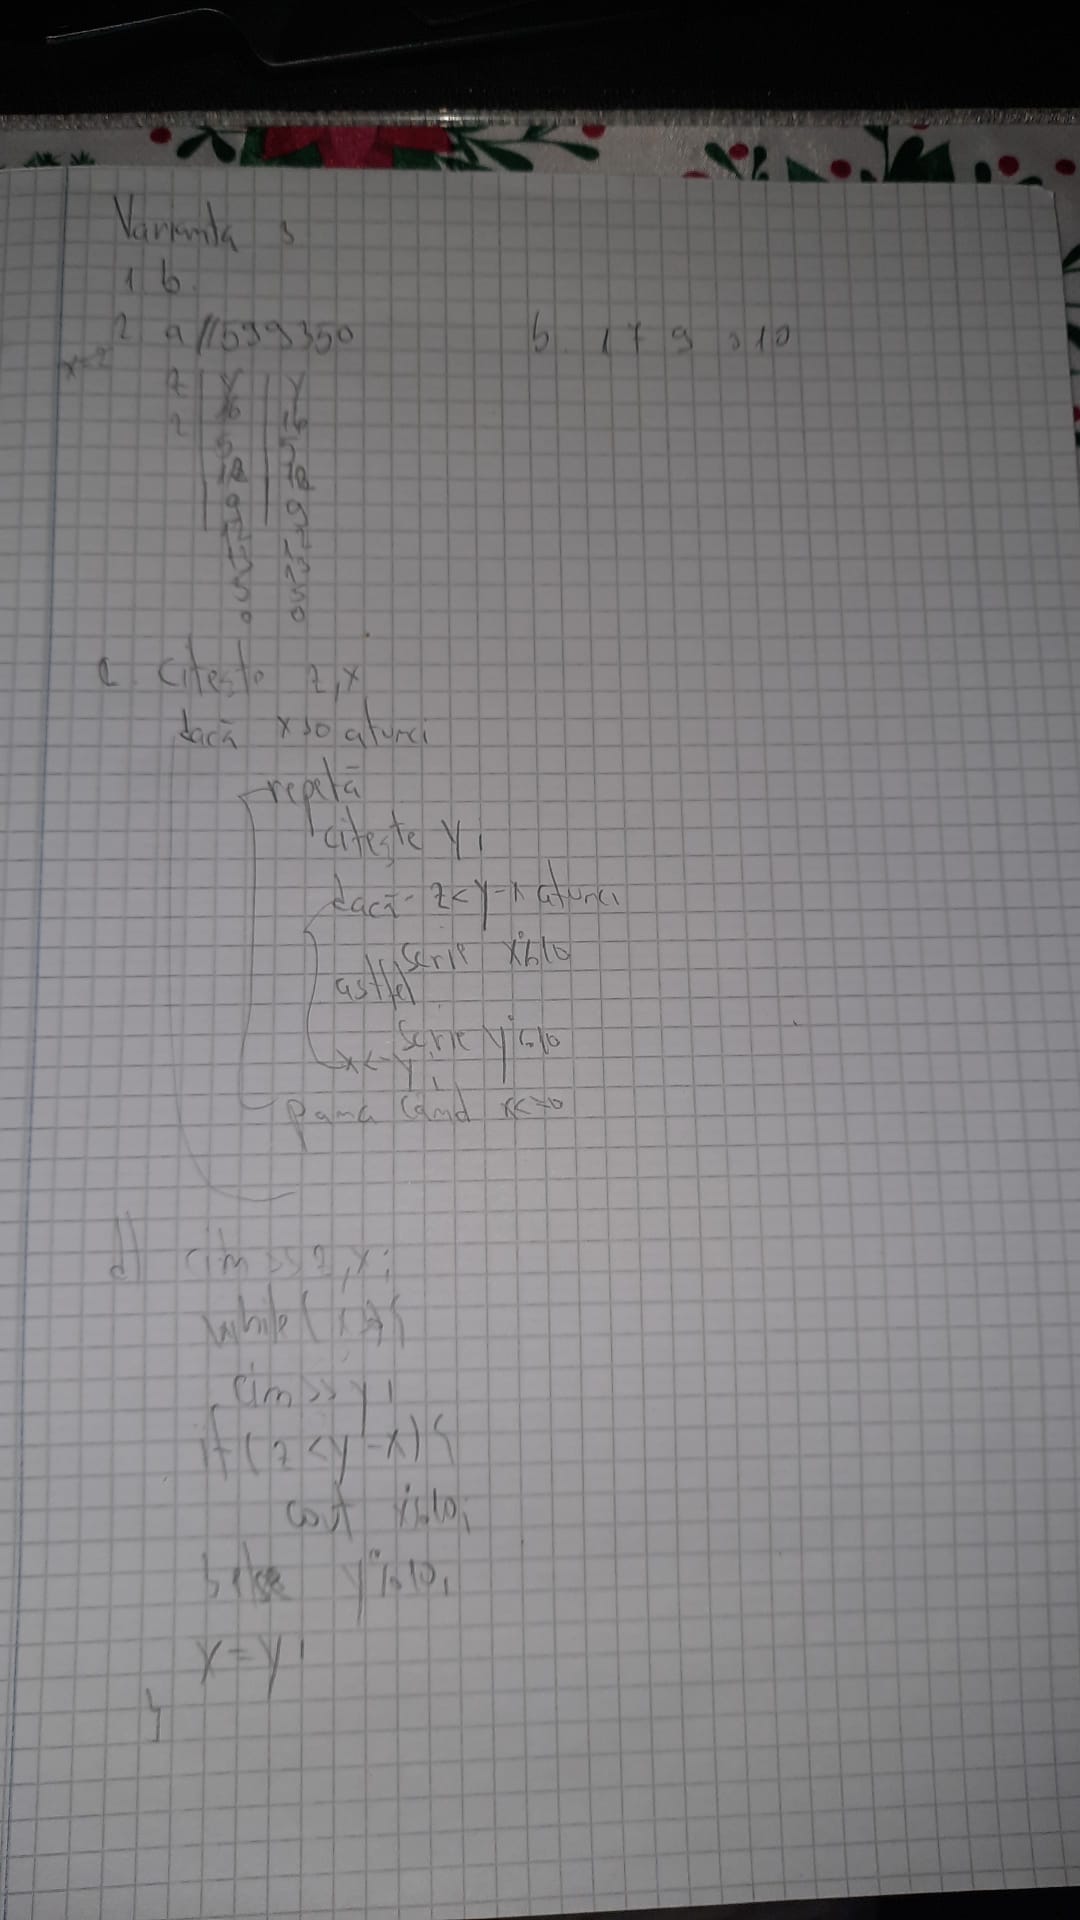 Varianta 3
1 b.
2 a 11599350 b. 1 7 9 0 10
x=2
z y y
2 16 16
5 5
18 18
9 9
12 12
13 13
5 5
0 0
c. citeste z, x
dacă x>0 atunci
repetă
citește y;
dacă z<y-x atunci
scrie x%10
astfel
scrie y%10
x<-y;
pana cand x<=0
d) cin >> z, x;
while(
cin >> y;
if (z < y - x) {
cout x%10;
}else y%10;
x = y;
}